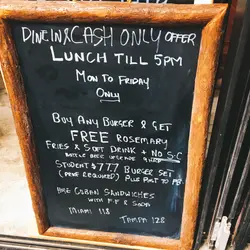 DINE IN & CASH ONLY OFFER
LUNCH TILL 5PM
MON TO FRIDAY
ONLY
BUY ANY BURGER & GET
FREE ROSEMARY
FRIES & SOFT DRINK + NO S.C
BOTTLE BEER UPGRADE
STUDENT $77.7 BURGER SET
(PROOF REQUIRED) PLUS
CUBAN SANDWICHES
WITH F.F & SODA
MIAMI 118 TAMPA 128